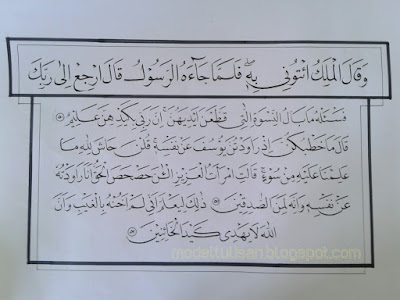 وَقَالَ الْمَلِكُ ائْتُونِي بِهِ ۖ فَلَمَّا جَاءَهُ الرَّسُولُ قَالَ ارْجِعْ إِلَىٰ رَبِّكَ
فَسْئَلْهُ مَا بَالُ النِّسْوَةِ الّٰتِي قَطَّعْنَ أَيْدِيَهُنَّ ۚ إِنَّ رَبِّي بِكَيْدِهِنَّ عَلِيمٌ ۝٥٠
قَالَ مَا خَطْبُكُنَّ إِذْ رَاوَدْتُنَّ يُوسُفَ عَنْ نَفْسِهِ ۚ قُلْنَ حَاشَ لِلَّهِ مَا
عَلِمْنَا عَلَيْهِ مِنْ سُوءٍ ۚ قَالَتِ امْرَأَتُ الْعَزِيزِ الْـٰٔنَ حَصْحَصَ الْحَقُّ أَنَا رَاوَدْتُهُ
عَنْ نَفْسِهِ وَإِنَّهُ لَمِنَ الصّٰدِقِينَ ۝٥١ ذٰلِكَ لِيَعْلَمَ أَنِّي لَمْ أَخُنْهُ بِالْغَيْبِ وَأَنَّ
اللَّهَ لَا يَهْدِي كَيْدَ الْخَائِنِينَ ۝٥٢
modeltulisan.blogspot.com